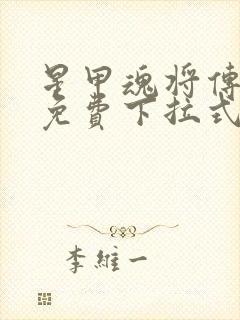 星甲魂将傳
免費下拉式
李維一